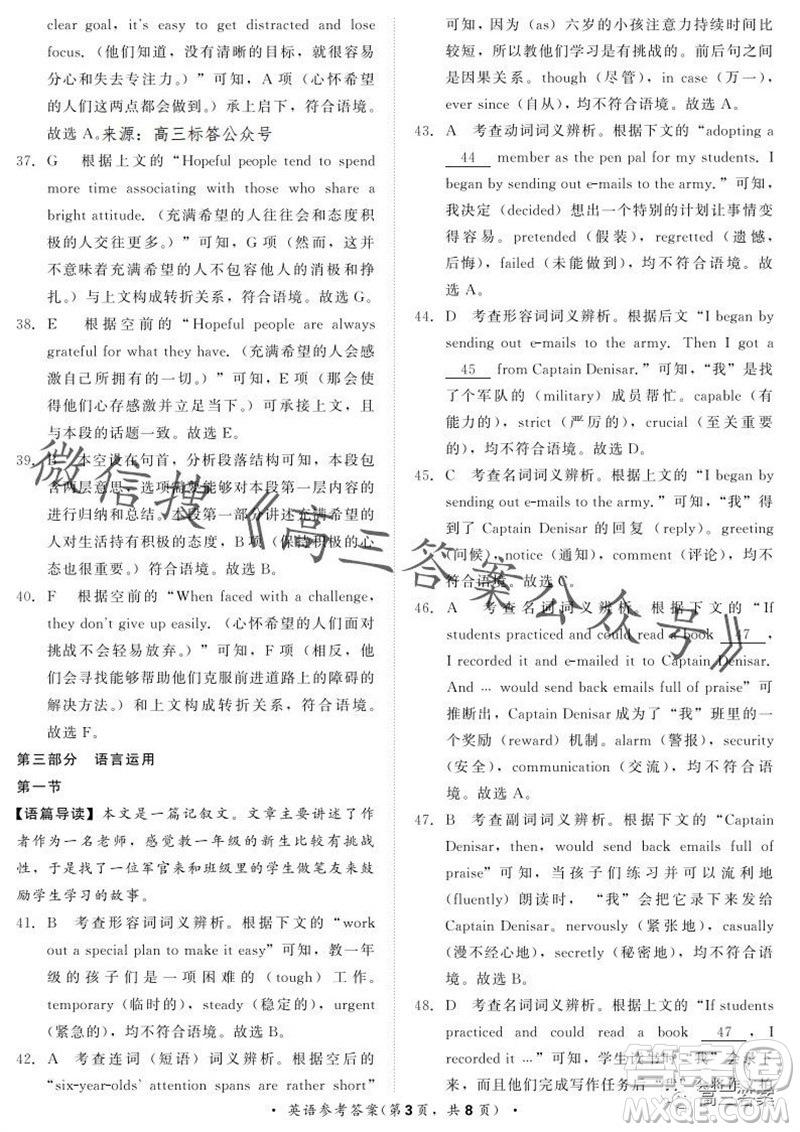 clear goal, it's easy to get distracted and lose
focus. (他们知道，没有清晰的目标，就很容易
分心和失去专注力。)”可知，A 项（心怀希望
的人们这两点都会做到）承上启下，符合语境。
故选 A。来源：高三标答公众号
37. G 根据上文的“Hopeful people tend to spend
more time associating with those who share a
bright attitude. (充满希望的人往往会和态度积
极的人交往更多。)”可知，G 项（然而，这并
不意味着充满希望的人不会有他们的消极和挣
扎。）与上文构成转折关系，符合语境。故选 G。
38. E 根据空前的“Hopeful people are always
grateful for what they have. (充满希望的人总是
感激自己所拥有的一切。)”可知，E 项（希望
使他们心存感激并立足当下。）可承接上文，且
与本段的话题一致。故选 E。
39. B 本空设在句首，分析段落结构可知，本段包
含两层意思，选项需要能够对本段第一层内容进
行归纳和总结。本段第一部分讲述充满希望的
人对生活持有积极的态度，B 项（保持积极的心
态。）符合语境。故选 B。
40. F 根据空前的“When faced with a challenge,
they don't give up easily. (心怀希望的人们面对
挑战不会轻易放弃。)”可知，F 项（相反，希
望能帮助他们克服前进道路上的障碍的寻找
解决方法。）和上文构成转折关系，符合语境。
故选 F。
第三部分 语言运用
第一节
【语篇导读】本文是一篇记叙文。文章主要讲述了作
者作为一名老师，感觉教一年级的新生比较有挑战
性，然后通过让一位军官来和班级里的学生做笔友来鼓
励学生学习的故事。
41. B 考查形容词词义辨析。根据下文的“work
out a special plan to make it easy”可知，教一年
级的孩子们是一项困难的（tough）工作。
temporary（临时的），steady（稳定的），urgent
（紧急的），均不符合语境。故选 B。
42. A 考查连词（短语）词义辨析。根据空后的
“six-year-olds' attention spans are rather short”
可知，因为（as）六岁的小孩注意力持续时间比
较短，所以教他们学习是有挑战的。前后句之间
是因果关系。though（尽管），in case（万一），
ever since（自从），均不符合语境。故选 A。
43. A 考查动词词义辨析。根据下文的“adopting a
44 member as the pen pal for my students. I
began by sending out e-mails to the army.”可知，
我决定（decided）想出一个特别的计划让事情变
得容易。pretended（假装），regretted（遗憾，
后悔），failed（未能做到），均不符合语境。故
选 A。
44. D 考查形容词词义辨析。根据后文“I began by
sending out e-mails to the army. Then I got a
45 from Captain Denisar.”可知，“我”是找
了个军队的（military）成员帮忙。capable（有
能力的），strict（严厉的），crucial（至关重要
的），均不符合语境。故选 D。
45. C 考查名词词义辨析。根据上文的“I began by
sending out e-mails to the army.”可知，“我”得
到了 Captain Denisar 的回复（reply）。greeting
（问候），notice（通知），comment（评论），均不
符合语境。故选 C。
46. A 考查名词词义辨析。根据下文的“If
students practiced and could read a book 47 ,
I recorded it and e-mailed it to Captain Denisar.
And … would send back emails full of praise”可
推断出，Captain Denisar 成为了“我”班里的一
个奖励（reward）机制。alarm（警报），security
（安全），communication（交流），均不符合语境。
故选 A。
47. B 考查副词词义辨析。根据下文的“Captain
Denisar, then … would send back emails full of
praise”可知，当孩子们练习并可以流利地
（fluently）朗读时，“我”会将其录下发给
Captain Denisar。nervously（紧张地），casually
（漫不经心地），secretly（秘密地），均不符合语
境。故选 B。
48. D 考查名词词义辨析。根据上文的“If students
practiced and could read a book 47 , I
recorded it …”可知，学生读书时“我”会录下
来，而他们完成写作任务后“我”会将作文拍
• 英语参考答案（第3页，共8页） •
微信搜《高三答案公众号》
高三答案